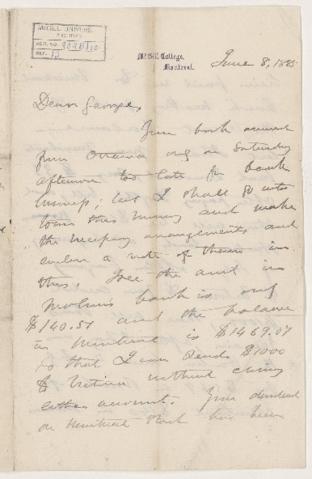 McGILL UNIVERSITY
ARCHIVES
ACC. NO.
REF.
McGill College,
Montreal.
June 8, 1885
Dear George,
Your bank account
from Ottawa only on Saturday
afternoon too late for bank
business; but I shall go into
town this morning and make
the necessary arrangements and
enclose a note of them in
this. I see the amt in
Molsons bank is only
$140.51 and the balance
in Montreal is $1489.07
so that I can send $1000
to Victoria without closing
either account. Your dividend
on Montreal Stock has been